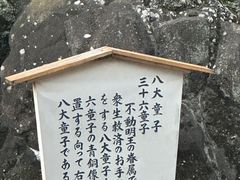 八大童子
三十六童子
不動明王の眷属で
衆生救済のお手
をする八大童子、
六童子の青銅像
置する向って右
八大童子である